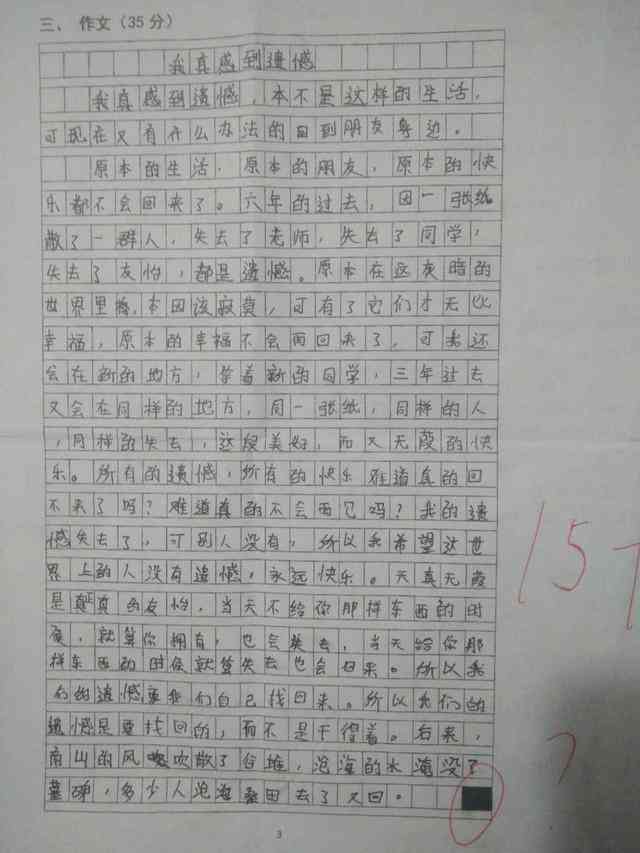 三、作文（35分）
我真感到遗憾
我真感到遗憾，本不是这样的生活，
可现在又有什么办法的回到朋友身边。
原本的生活，原本的朋友，原本的快
乐都不会回来了。六年的过去，因一张纸
散了一群人，失去了老师，失去了同学，
失去了友怡，都是遗憾。原本在这灰暗的
世界里，本因该寂寞，可有了它们才无比
幸福，原本的幸福不会再回来了，可我还
会在新的地方，带着新的同学，三年过去
又会在同样的地方，同一张纸，同样的人
，同样的失去，这段美好，而又无霞的快
乐。所有的遗憾，所有的快乐难道真的回
不来了吗？难道真的不会再见吗？我的遗
憾失去了，可别人没有，所以我希望这世
界上的人没有遗憾，永远快乐。天真无霞
是真真的友怡，当天不给你那样东西的时
候，就算你拥有，也会失去，当天给你那
样东西的时侯就算失去也会回来。所以我
们的遗憾要我们自己找回来。所以我们的
遗憾是要找回的，而不是干得着。后来，
南山的风吹散了谷堆，沧海的水淹没了
墓碑，多少人沧海桑田去了又回。
15
3